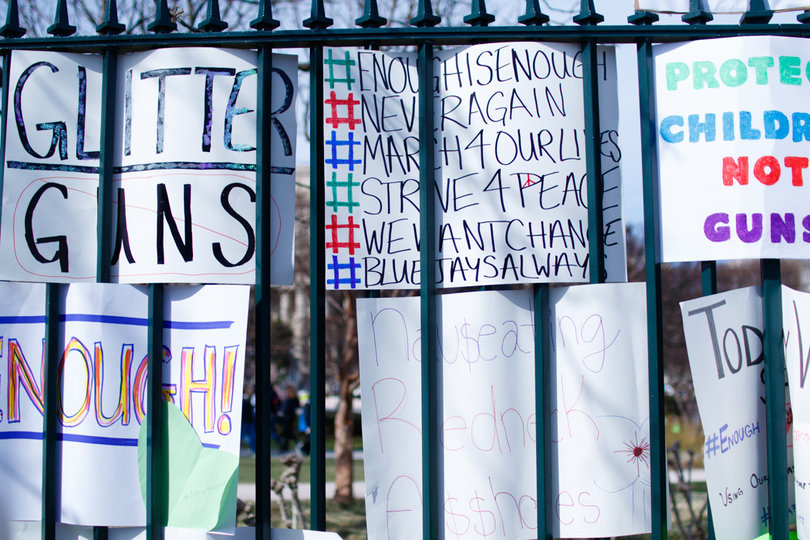 GLITTER
GUNS
#ENOUGHISENOUGH
#NEVERAGAIN
#MARCH4OURLIVES
#STRIVE4PEACE
#WEWANTCHANGE
#BLUEJAYSALWAYS
PROTE
CHILDR
NOT
GUNS
ENOUGH!
Nau$eating
Redneck
A$$holes
TODAY
#ENOUGH
USING OUR